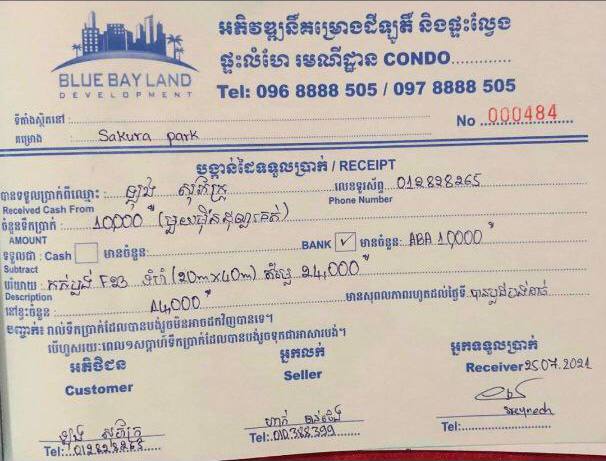 អភិវឌ្ឍន៍គម្រោងដីឡូតិ៍ និងផ្ទះល្វែង
ផ្ទះលំហែ រមណីដ្ឋាន CONDO
BLUE BAY LAND
DEVELOPMENT
Tel: 096 8888 505 / 097 8888 505
ទីតាំងស្ថិតនៅ :
No 000484
គម្រោង : Sakura park
បង្កាន់ដៃទទួលប្រាក់ / RECEIPT
បានទទួលប្រាក់ពីឈ្មោះ : ឡុង សុភ័ក្រ លេខទូរស័ព្ទ 012828265
Received Cash From Phone Number
ចំនួនទឹកប្រាក់ : 10,000 (មួយម៉ឺនដុល្លារគត់)
AMOUNT
ទទួលជា : Cash មានចំនួន: BANK ✓ មានចំនួន: ABA 10,000
Subtract
បរិយាយ : កក់ប្លង់ F23 ទំហំ (20mx40m) តម្លៃ 24,000
Description
នៅខ្វះចំនួន 14,000 មានសុពលភាពរហូតដល់ថ្ងៃទី
បញ្ជាក់៖ រាល់ទឹកប្រាក់ដែលបានបង់រួចមិនអាចដកវិញបានទេ។
បើហួសរយៈពេល១សប្តាហ៍ទឹកប្រាក់ដែលបានបង់រួចទុកជាអាសារបង់។
អតិថិជន អ្នកលក់ អ្នកទទួលប្រាក់
Customer Seller Receiver 25.07.2021
Sreynech
ឡុង សុភ័ក្រ
Tel: 012828265 Tel: Tel: